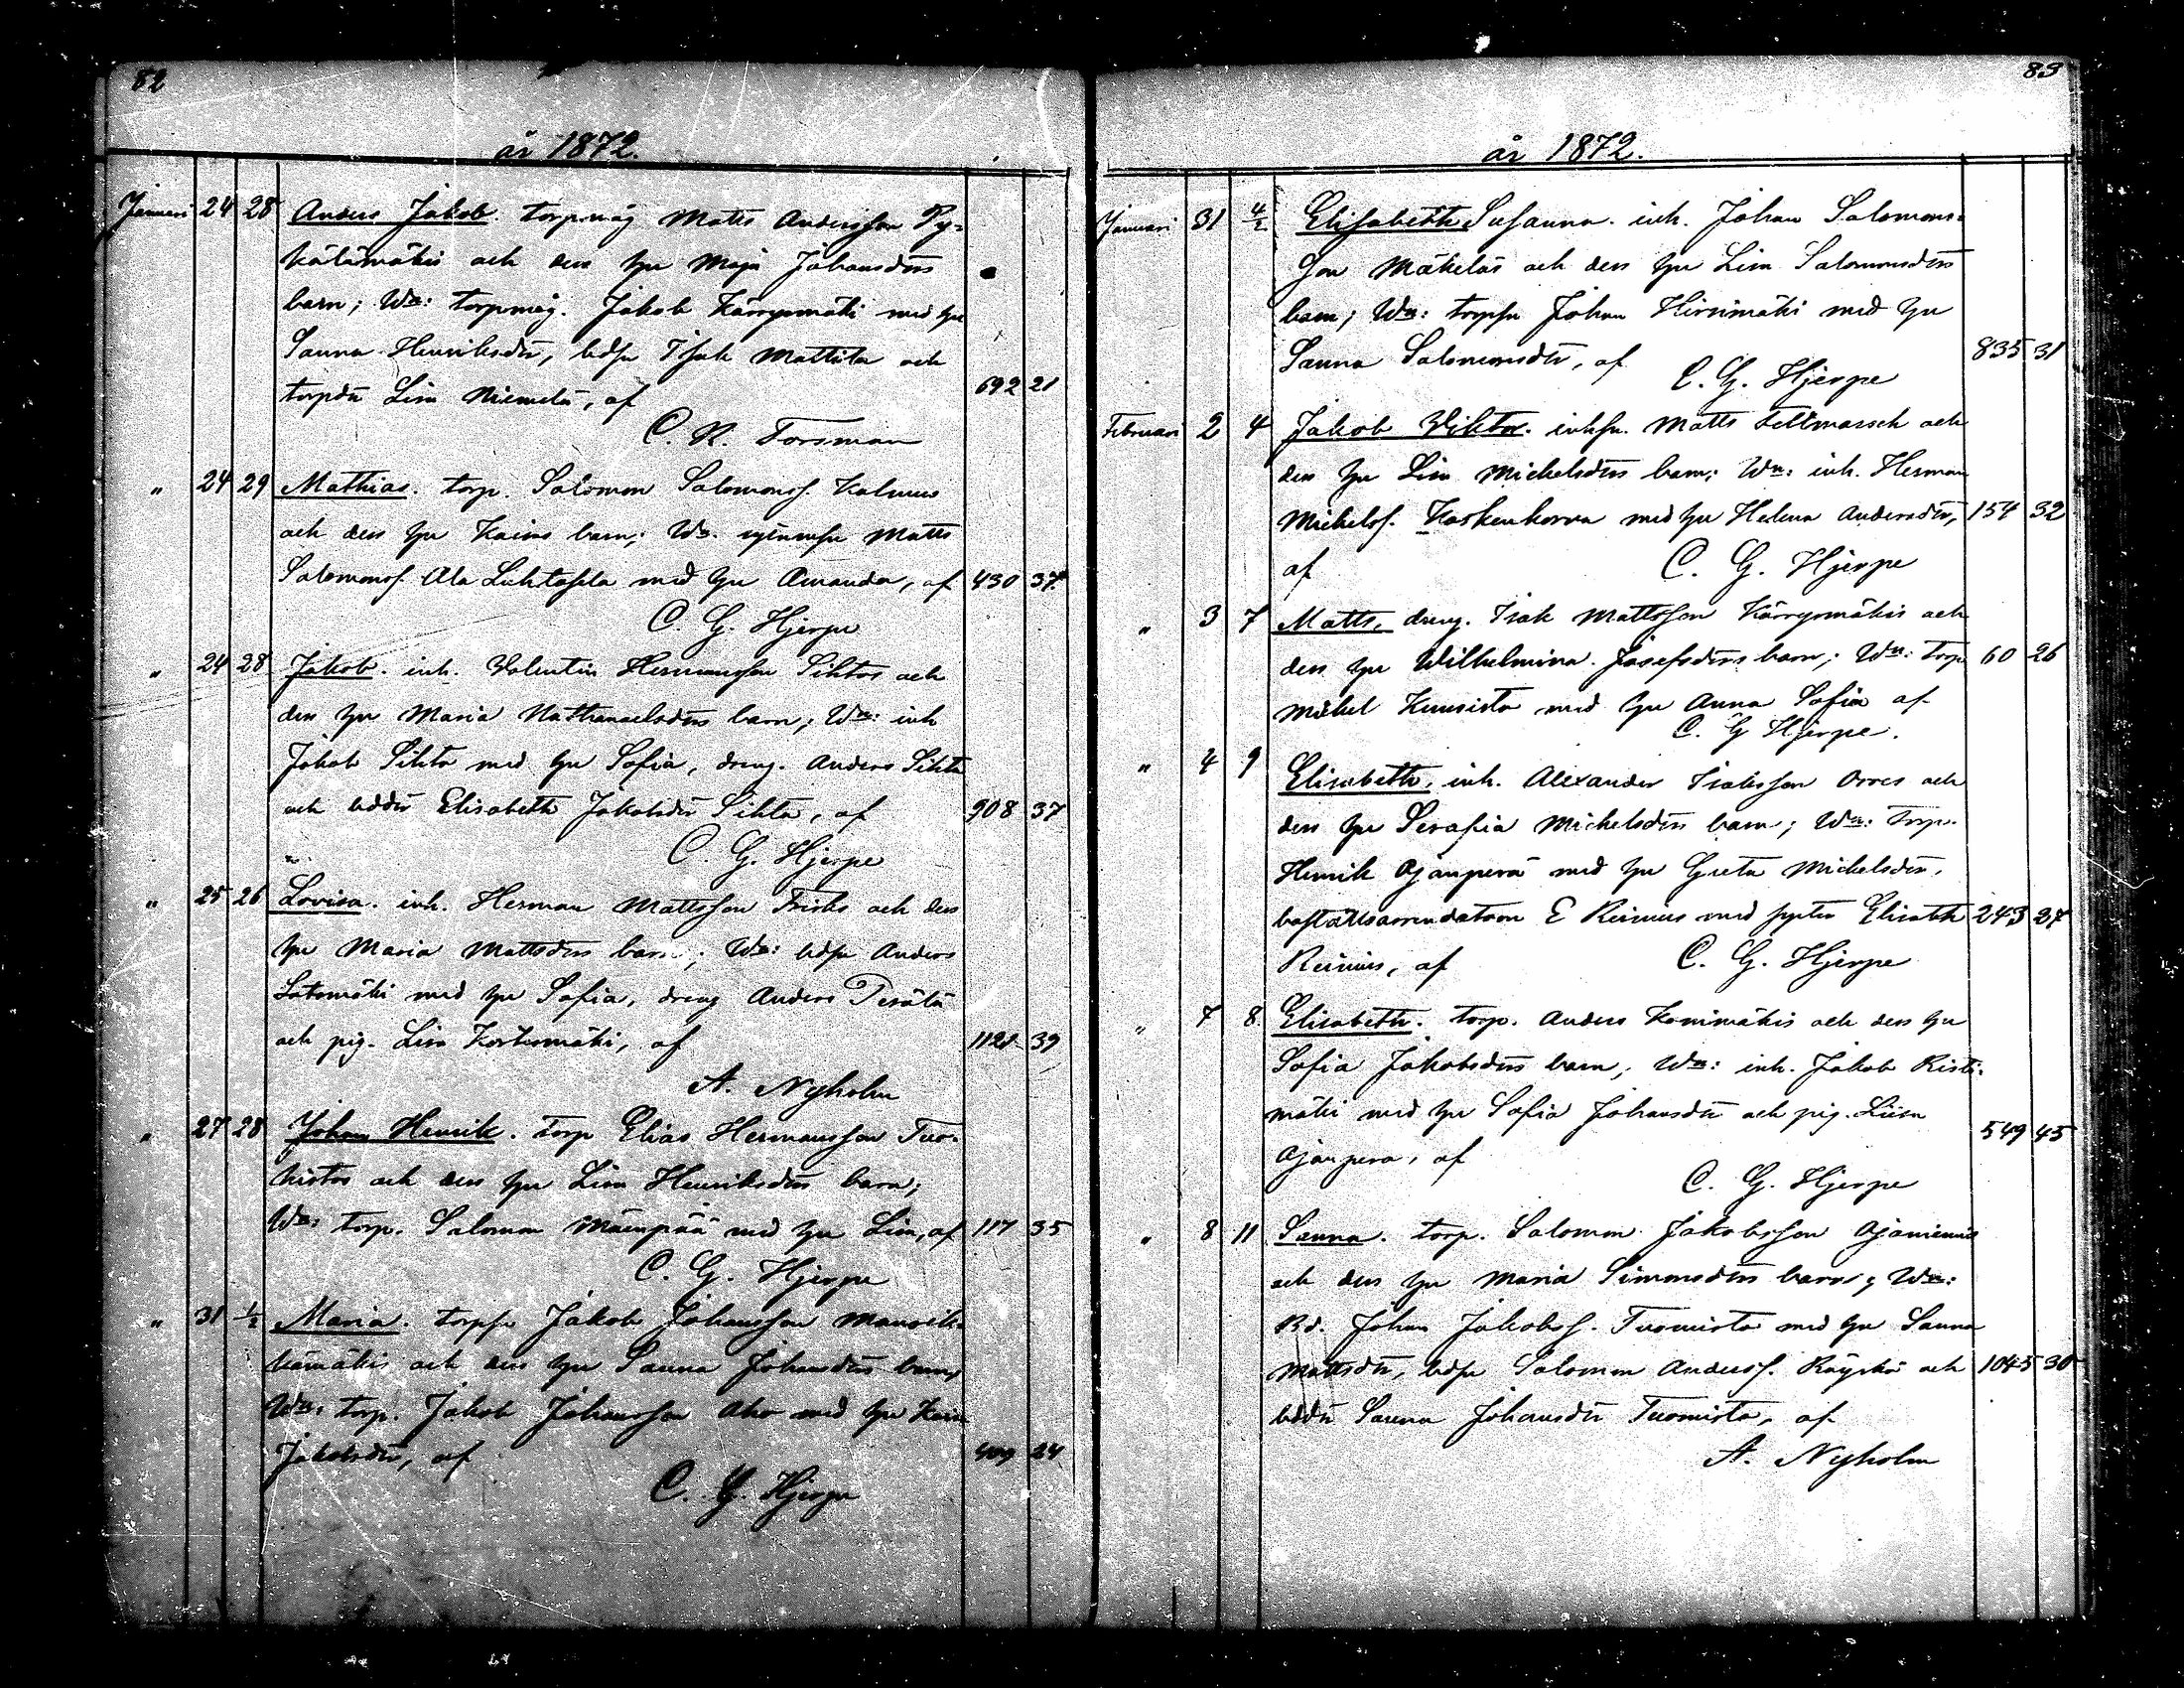 82
år 1872.
Januari 24 28 Anders Jakob. torpmåg Matts Andersson Py-
kälämäkis och dess hu Maja Johansdrs
barn; Wn: torpmåg. Jakob Kärrysmäki med hu
Sanna Henriksdr, bdsn Isak Mattila och
torpdr Lisa Niemelä, af 692 21
C. R. Forsman
" 24 29 Mathias. torp. Salomon Salomonss.
och dess hu Kaisas barn; Wn. Matts
Salomonss. Ala Luhtasela med hu Amanda, af 430 37.
C. G. Hjerpe
" 24 28 Jakob. inh. Valentin Hermansson Sihtos och
dess hu Maria Nathanaelsdrs barn; Wn: inh
Jakob Sihto med hu Sofia, dreng. Anders Sihto
och bddr Elisabeth Jakobsdr Sihto, af 908 37
C. G. Hjerpe
" 25 26 Lovisa. inh. Herman Mattsson Frisks och dess
hu Maria Mattsdrs barn; Wn: bdsn Anders
Latomäki med hu Sofia, dreng Anders Perälä
och pig. Lisa Kortesmäki, af 1121 39
A. Nyholm
" 27 28 Johan Henrik. torp Elias Hermansson Tuo-
histos och dess hu Lisa Henriksdrs barn;
Wn: torp. Salomon Mäenpää med hu Lisa, af 117 35
C. G. Hjerpe
" 31 1/2 Maria. torpsn Jakob Johansson
kamäkis och dess hu Sanna Johansdrs barn,
Wn: torp. Jakob Johansson Aho med hu Kaisa
Jakobsdr, af 409 24
C. G. Hjerpe
83
år 1872.
Januari 31 4/2 Elisabeth Susanna. inh. Johan Salomons-
son Mäkeläs och dess hu Lisa Salomonsdrs
barn; Wn: torpsn Johan Hirsimäki med hu
Sanna Salomonsdr, af 835 31
C. G. Hjerpe
Februari 2 4 Jakob Viktor. inhsn. Matts Feltmarsch och
dess hu Lisa Michelsdrs barn; Wn: inh. Herman
Michelss. Koskenkorva med hu Helena Andersdr, 154 32
af C. G. Hjerpe
" 3 7 Matts, dreng. Isak Mattsson Kärrysmäkis och
dess hu Wilhelmina Josefsdrs barn; Wn: torp 60 26
Mickel Kuusisto med hu Anna Sofia af
C. G Hjerpe.
" 4 9 Elisabeth, inh. Alexander Isaksson Orres och
dess hu Serafia Michelsdrs barn; Wn: Torp.
Henrik Ojanperä med hu Greta Michelsdr,
boställsarrendatorn E Reinius med syster Elisabeth 243 27
Reinius, af C. G. Hjerpe
" 7 8 Elisabeth. torp. Anders Konimäkis och dess hu
Sofia Jakobsdrs barn; Wn: inh. Jakob Risti-
mäki med hu Sofia Johansdr och pig. Liisa
Ojanpera, af 549 45
C. G. Hjerpe
" 8 11 Sanna. torp. Salomon Jakobsson Ojaniemis
och dess hu Maria Simonsdrs barn; Wn:
Bd. Johan Jakobss. Tuomisto med hu Sanna
Mattsdr, bdsn Salomon Anderss. Röyskö och 1045 30
bddr Sanna Johansdr Tuomisto, af
A. Nyholm